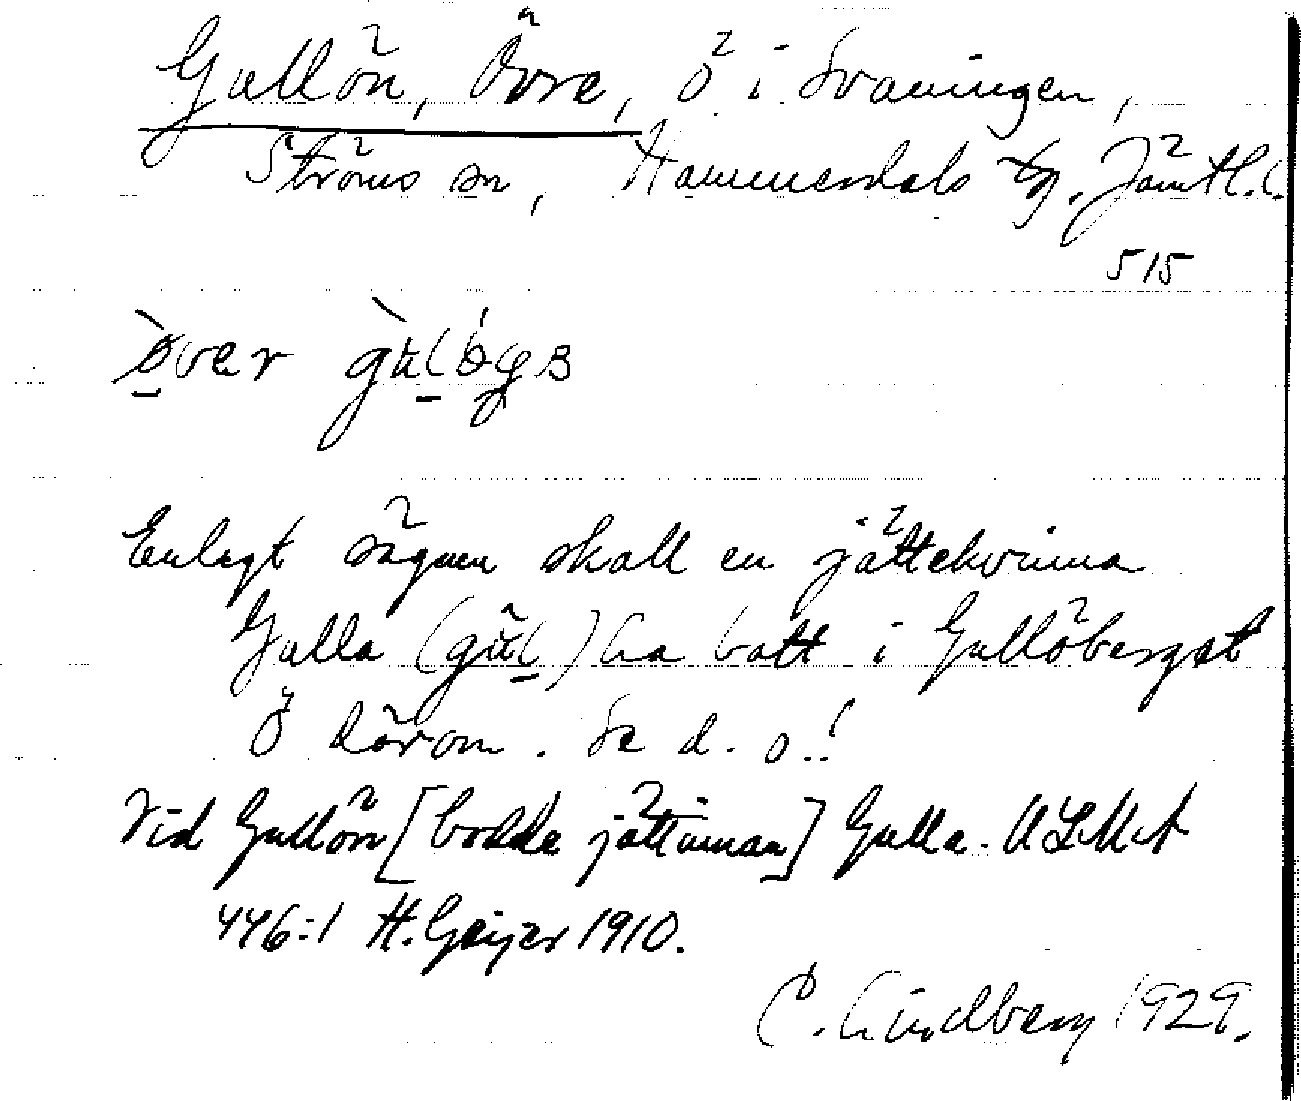 Gullön, Övre, ö i Svaningen,
Ströms sn, Hammerdals tg. Jämtl. l.
515
Enligt sägnen skall en jättekvinna
Gulla ( ) ha bott i Gullöberget
Ö därom. Se d. o.!
Vid Gullön [bodde jättinnan] Gulla. ULMA
446:1 H. Geijer 1910.
C. Lindberg 1929.